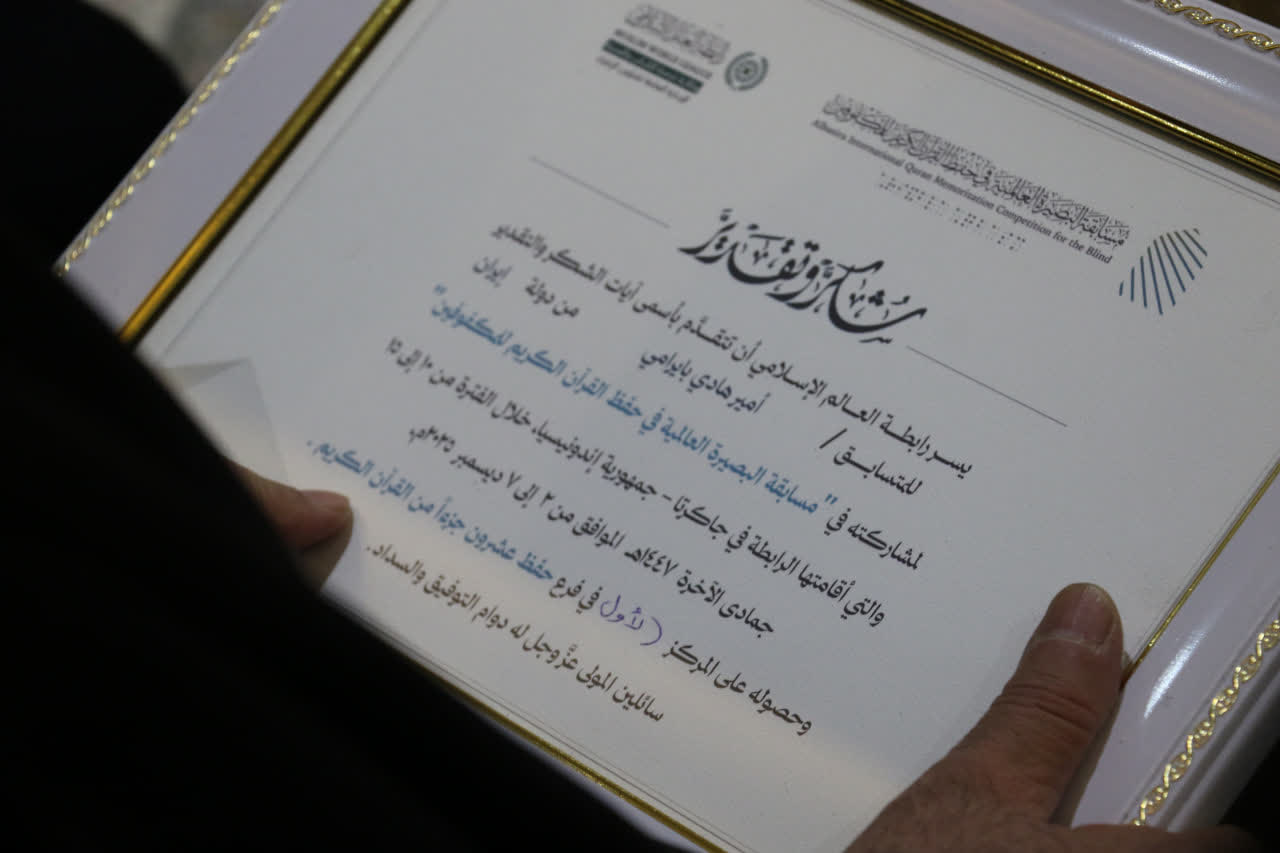 رابطة العالم الإسلامي
MUSLIM WORLD LEAGUE
مسابقة البصيرة العالمية في حفظ القرآن الكريم للمكفوفين
Albasira International Quran Memorization Competition for the Blind
شكر وتقدير
يسر رابطة العالم الإسلامي أن تتقدَّم بأسمى آيات الشكر والتقدير
للمتسابق / أميرهادي بايرامي من دولة إيران
لمشاركته في "مسابقة البصيرة العالمية في حفظ القرآن الكريم للمكفوفين"
والتي أقامتها الرابطة في جاكرتا - جمهورية إندونيسيا، خلال الفترة من ١٠ إلى ١٥
جمادى الآخرة ١٤٤٧هـ الموافق من ٢ إلى ٧ ديسمبر ٢٠٢٥م،
وحصوله على المركز (الأول في فرع حفظ عشرون جزءاً من القرآن الكريم.
سائلين المولى عزَّ وجل له دوام التوفيق والسداد.